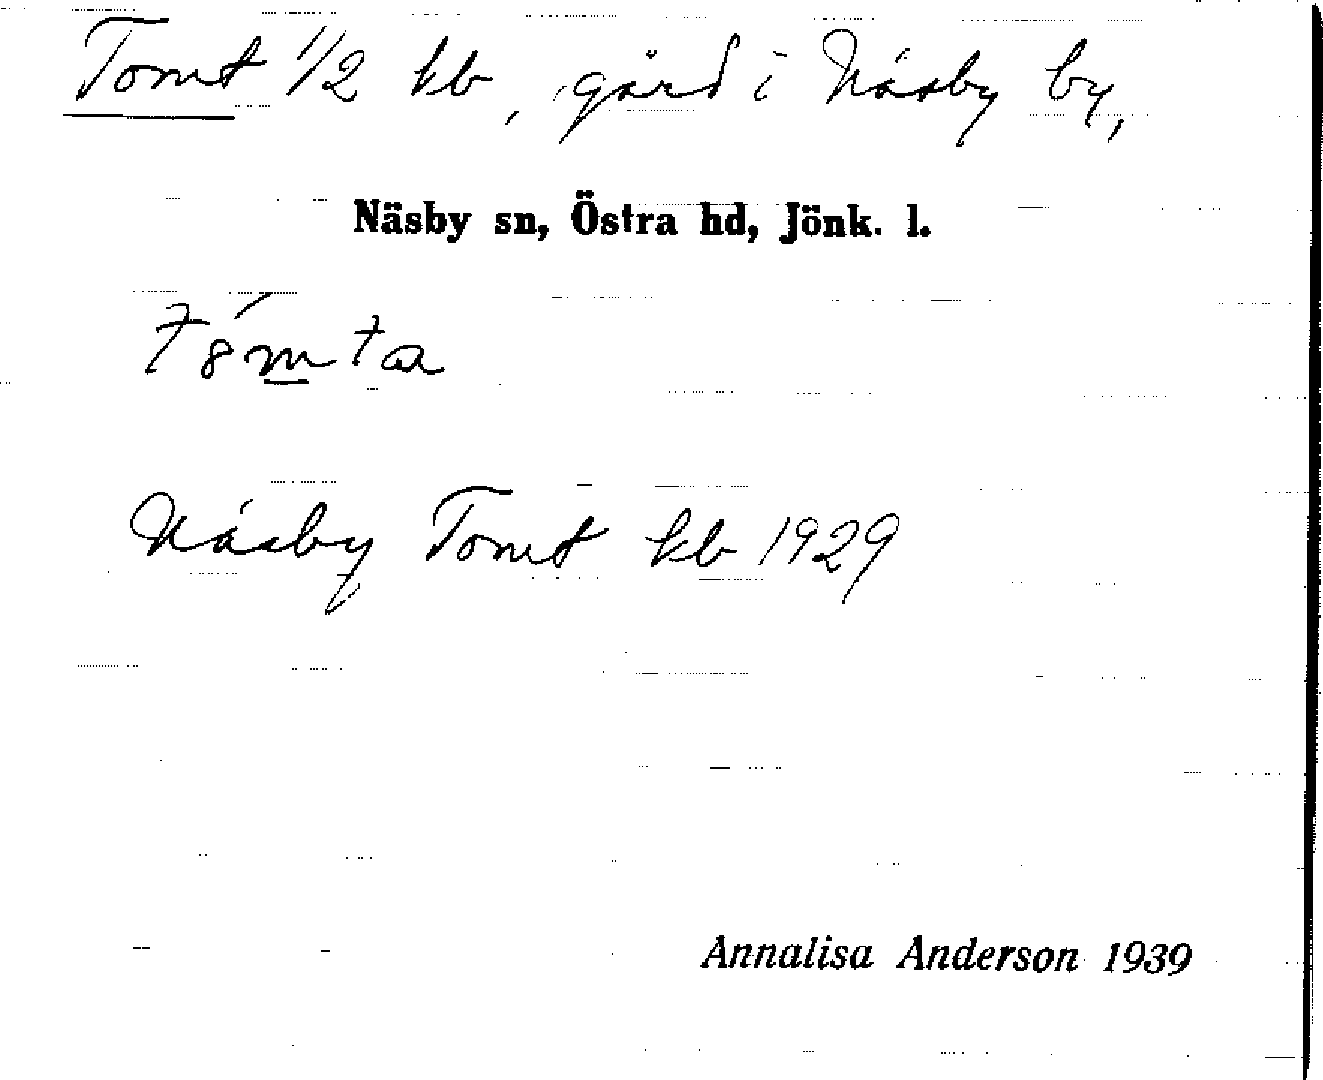 Tomt 1/2 kb, gård i Näsby by,
Näsby sn, Östra hd, Jönk. l.
Näsby Tomt kb 1929
Annalisa Anderson 1939